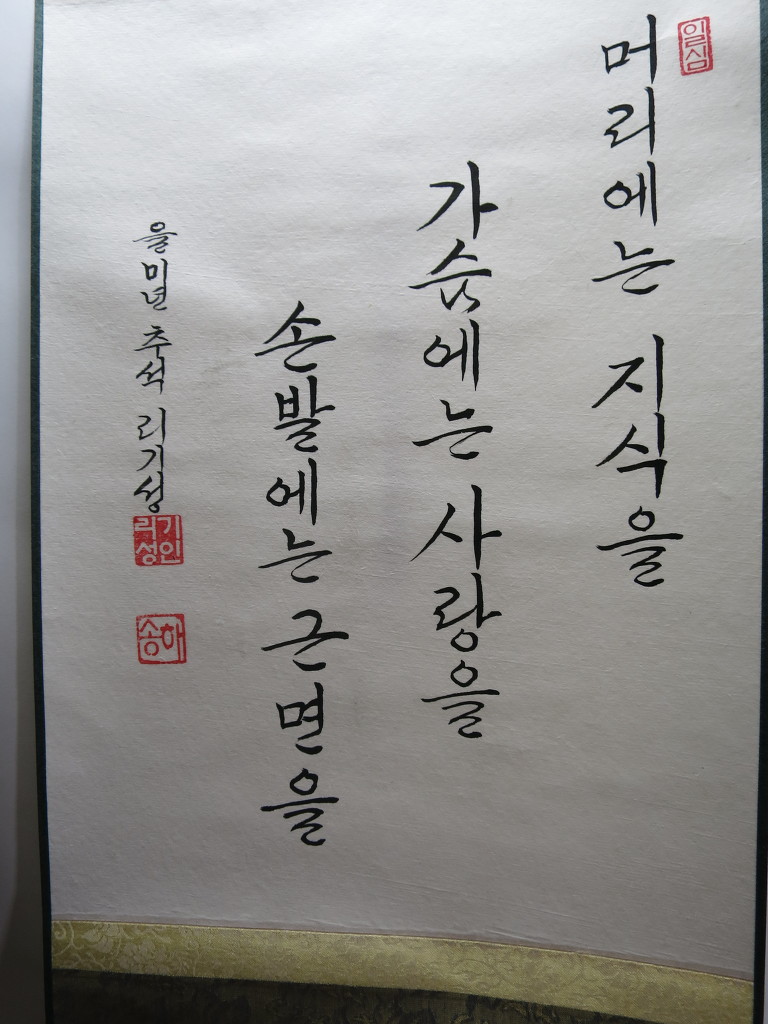 일심
머리에는 지식을
가슴에는 사랑을
손발에는 근면을
을미년 추석 리기성
리기성인
송하